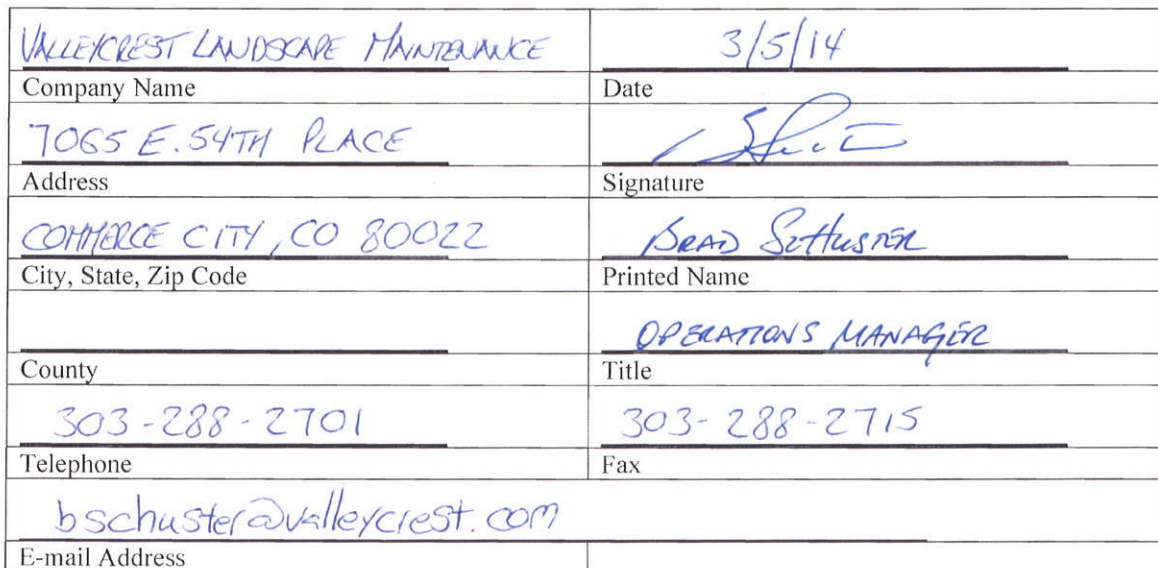 VALLEYCREST LANDSCAPE MAINTENANCE 3/5/14
Company Name Date
7065 E. 54TH PLACE
Address Signature
COMMERCE CITY, CO 80022 BRAD SCHUSTER
City, State, Zip Code Printed Name
OPERATIONS MANAGER
County Title
303-288-2701 303-288-2715
Telephone Fax
bschuster@valleycrest.com
E-mail Address